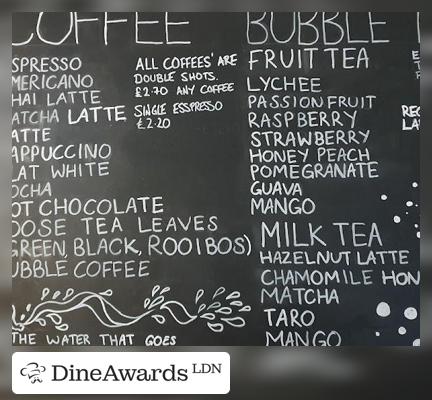 COFFEE
SPRESSO
MERICANO
HAI LATTE
ATCHA LATTE
ATTE
APPUCCINO
LAT WHITE
OCHA
OT CHOCOLATE
OOSE TEA LEAVES
GREEN, BLACK, ROOIBOS)
UBBLE COFFEE
THE WATER THAT GOES
ALL COFFEES' ARE
DOUBLE SHOTS.
£2.70 ANY COFFEE
SINGLE ESSPRESSO
£2.20
BUBBLE
FRUIT TEA
LYCHEE
PASSIONFRUIT
RASPBERRY
STRAWBERRY
HONEY PEACH
POMEGRANATE
GUAVA
MANGO
MILK TEA
HAZELNUT LATTE
CHAMOMILE HON
MATCHA
TARO
MANGO
DineAwards LDN